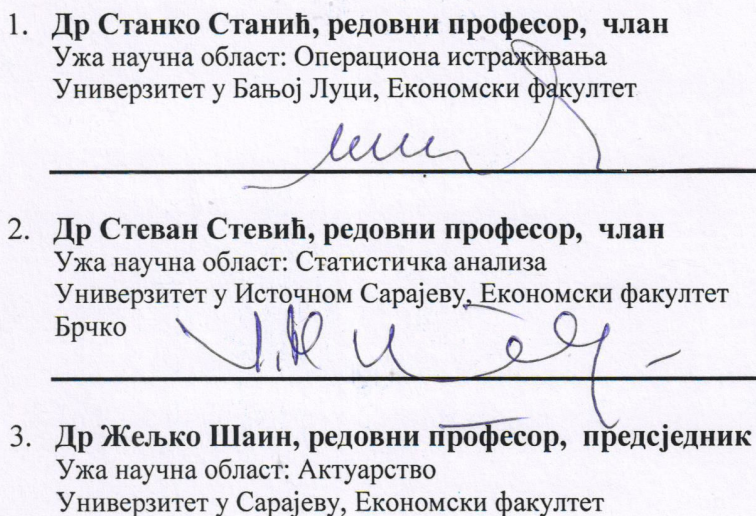 1. Др Станко Станић, редовни професор, члан
Ужа научна област: Операциона истраживања
Универзитет у Бањој Луци, Економски факултет
2. Др Стеван Стевић, редовни професор, члан
Ужа научна област: Статистичка анализа
Универзитет у Источном Сарајеву, Економски факултет
Брчко
3. Др Жељко Шаин, редовни професор, предсједник
Ужа научна област: Актуарство
Универзитет у Сарајеву, Економски факултет